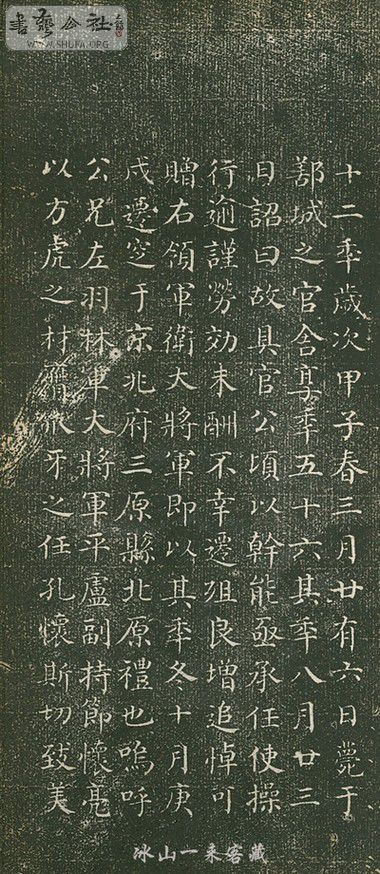 書藝公社
WWW.SHUFA.ORG
十二秊歲次甲子春三月廿有六日薨于
鄯城之官舍享秊五十六其秊八月廿三
日詔曰故具官公頃以幹能亟承任使操
行逾謹勞効未酬不幸遷殂良增追悼可
贈右領軍衛大將軍即以其秊冬十月庚
戌遷窆于京兆府三原縣北原禮也嗚呼
公兄左羽林軍大將軍平盧副持節懷亮
以方虎之材膺爪牙之任孔懷斯切致美
冰山一來客藏